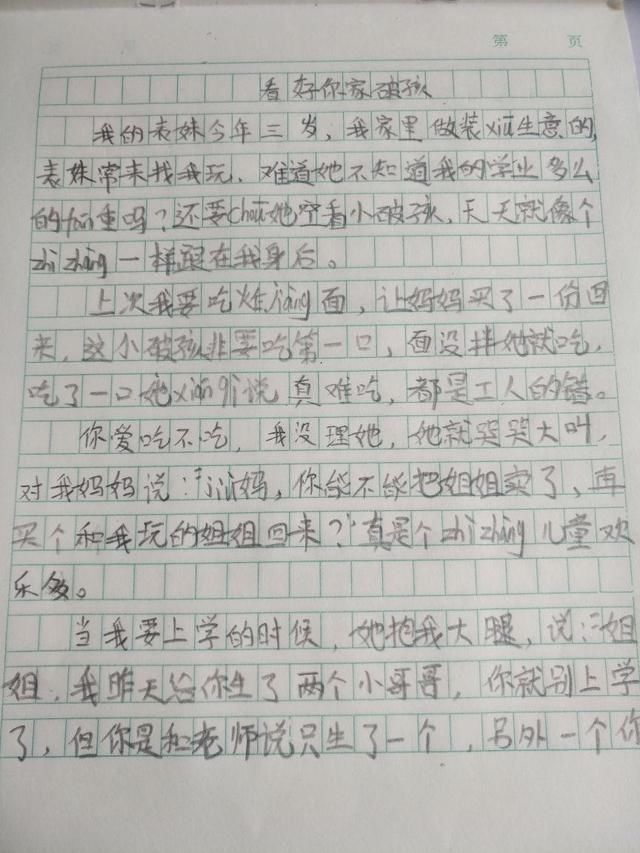 第 页
看好你家破孩
我的表妹今年三岁，我家里做装xiū生意的，
表妹常来找我玩，难道她不知道我的学业多么
的fán重吗？还要chōu她空看小破孩，天天就像个
zhì zhàng一样跟在我身后。
上次我要吃炸jiàng面，让妈妈买了一份回
来，这小破孩非要吃第一口，面没拌她就吃，
吃了一口她xián qì说真难吃，都是工人的错。
你爱吃不吃，我没理她，她就哭哭大叫，
对我妈妈说：“妈，你能不能把姐姐卖了，再
买个和我玩的姐姐回来？”真是个zhì zhàng儿童欢
乐多。
当我要上学的时候，她抱我大腿，说：“姐
姐，我昨天给你生了两个小哥哥，你就别上学
了，但你是和老师说只生了一个，另外一个你